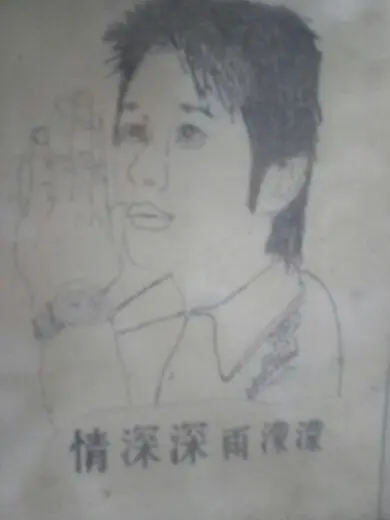 情深深雨濛濛